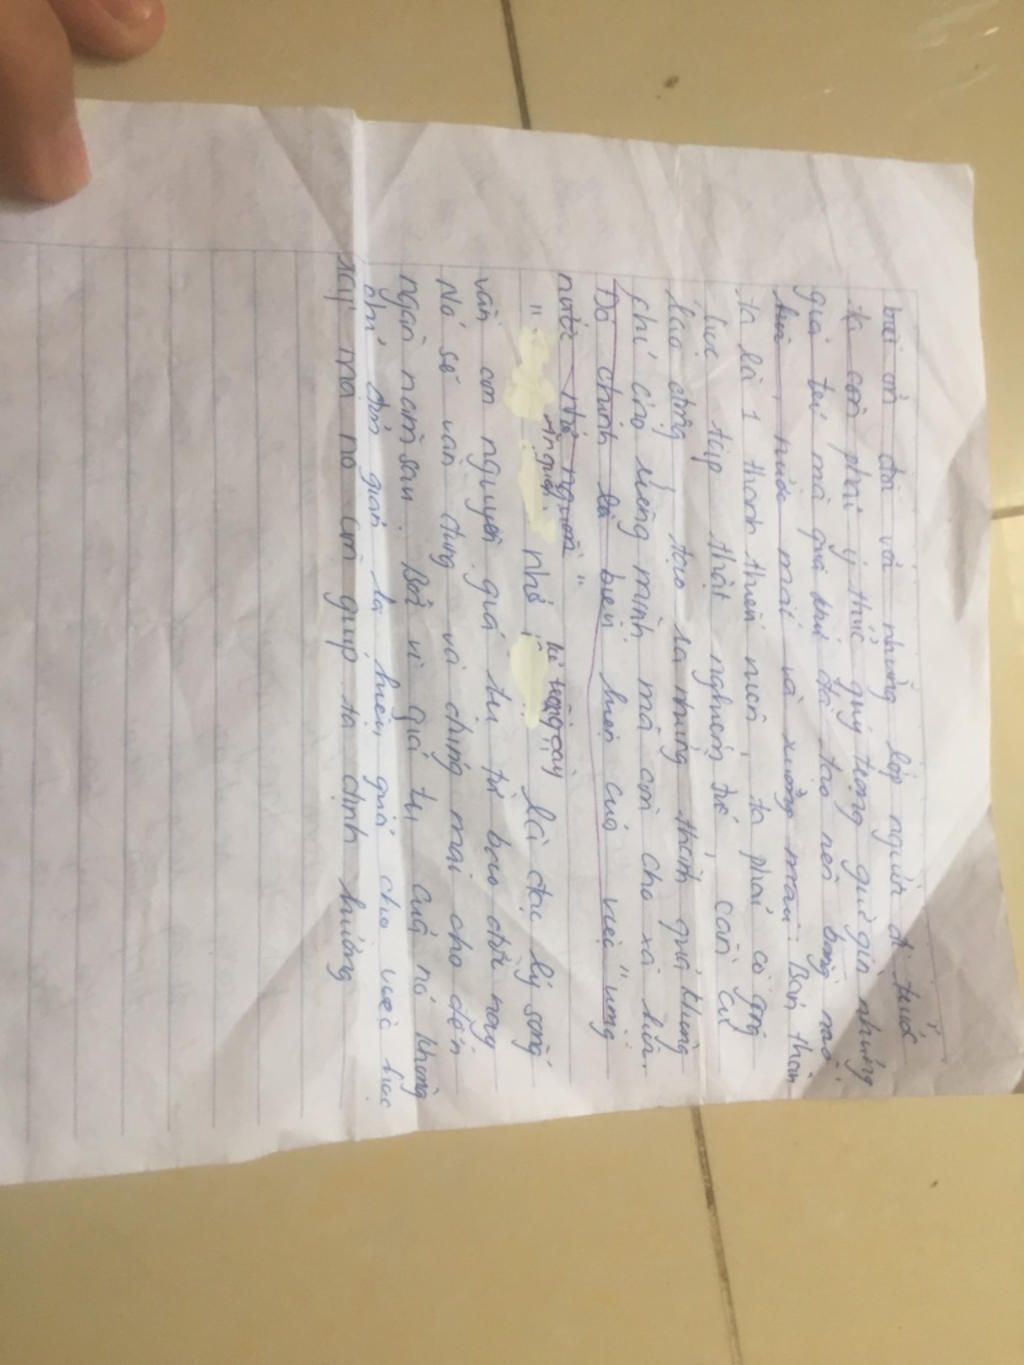 biết ơn đối với những lớp người đi trước
ta còn phải ý thức quý trọng giữ gìn những
giá trị mà quá khứ đã tạo nên bằng máu
mồ hôi, nước mắt và xương máu. Bản thân
ta là 1 thanh thiếu niên, ta phải cố gắng
học tập thật nghiêm túc, cần cù
lao động, tạo ra những thành quả không
chỉ cho riêng mình mà còn cho xã hội.
Đó chính là biểu hiện của việc "uống
nước nhớ nguồn"
" ăn quả nhớ kẻ trồng cây là đạo lý sống
vẫn còn nguyên giá trị từ bao đời nay
Nó sẽ vẫn đúng và đúng mãi cho đến
ngàn năm sau. Bởi vì giá trị của nó không
chỉ đơn giản là hiện quả cho việc học
tập mà nó còn giúp ta định hướng